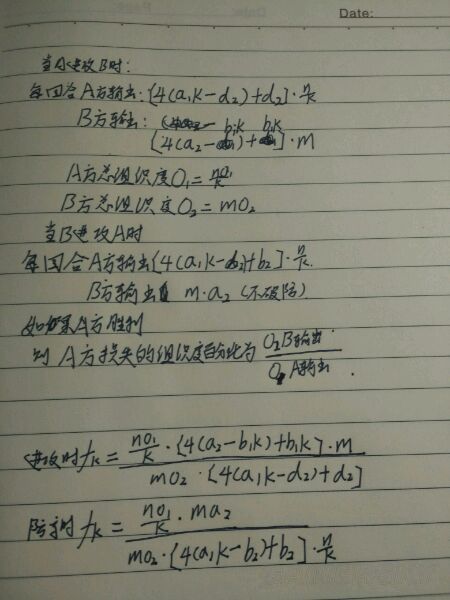 Date:
当A进攻B时:
每回合A方输出:[4(a₁k-d₂)+d₂]·n/k
B方输出: b₁k b₁k
[4(a₂- )+ ]·m
A方总组织度O₁=no₁/k
B方总组织度O₂=mo₂
当B进攻A时
每回合A方输出[4(a₁k-b₂)+b₂]·n/k.
B方输出 m·a₂(不破防)
如果A方胜利
则A方损失的组织度百分比为 O₂B输出/O₁A输出.
进攻时fₖ= no₁/k·[4(a₂-b₁k)+b₁k]·m / mo₂·[4(a₁k-d₂)+d₂]
防守时fₖ= no₁/k·ma₂ / mo₂·[4(a₁k-b₂)+b₂]·n/k